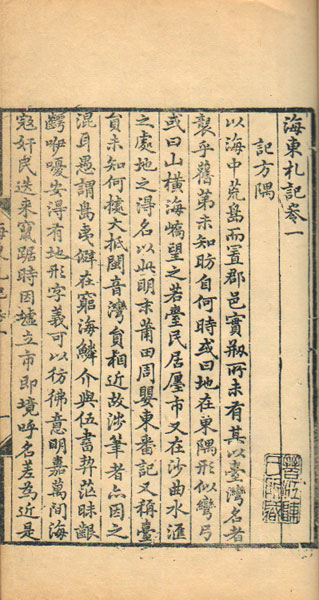 海東札記卷一
記方隅
以海中荒島而置郡邑實剏所未有其以臺灣名者
製乎舊第未知昉自何時或曰地在東隅形似彎弓
或曰山橫海嶠望之若臺民居廛市又在沙曲水滙
之處地之得名以此明末莆田周嬰東番記又稱臺
員未知何據大抵閩音灣員相近故涉筆者亦因之
混耳愚謂島夷僻在窮海鱗介與伍書契茫昧齦
齶咿嚘安得有地形字義可以彷彿意明嘉萬間海
寇奸民迭來竄踞時因墟立市即境呼名差為近是